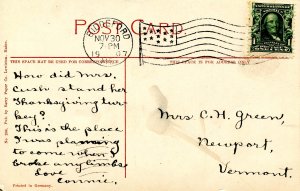 POST CARD
BIDDEFORD
NOV 30
7 PM
1907
THIS SPACE MAY BE USED FOR
THIS SPACE IS FOR ADDRESS ONLY.
How did Mrs.
Cush stand her
Thanksgiving tur-
key?
This is the place
I was planning
to come when I
broke my limb.
Love
Connie.
Mrs C. H. Green,
Newport,
Vermont.
Printed in Germany.